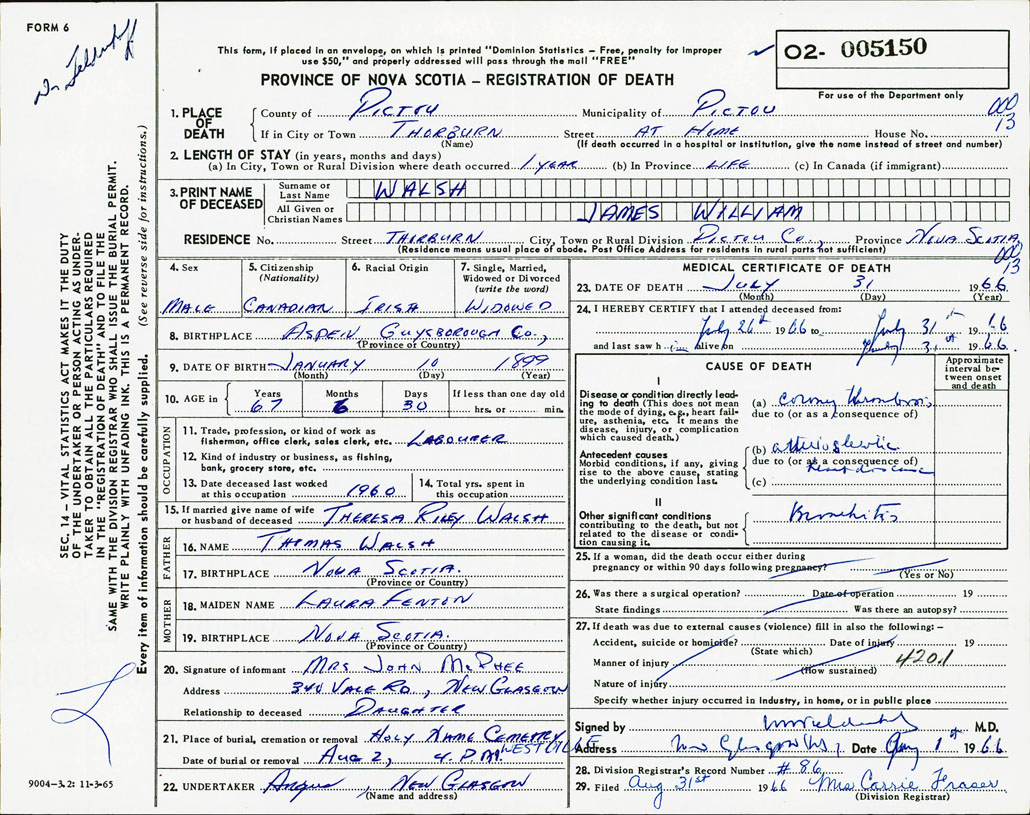 FORM 6
Dr Feldenhof
This form, if placed in an envelope, on which is printed "Dominion Statistics – Free, penalty for improper
use $50," and properly addressed will pass through the mail "FREE"
PROVINCE OF NOVA SCOTIA – REGISTRATION OF DEATH
02- 005150
For use of the Department only
1. PLACE OF DEATH
County of PICTOU Municipality of PICTOU
If in City or Town THORBURN Street AT HOME House No.
(Name) (If death occurred in a hospital or institution, give the name instead of street and number)
000
13
2. LENGTH OF STAY (in years, months and days)
(a) In City, Town or Rural Division where death occurred 1 YEAR (b) In Province LIFE (c) In Canada (if immigrant)
3. PRINT NAME OF DECEASED
Surname or Last Name WALSH
All Given or Christian Names JAMES WILLIAM
RESIDENCE No. Street THORBURN City, Town or Rural Division PICTOU CO., Province NOVA SCOTIA
(Residence means usual place of abode. Post Office Address for residents in rural parts not sufficient)
000
13
4. Sex
MALE
5. Citizenship (Nationality)
CANADIAN
6. Racial Origin
IRISH
7. Single, Married, Widowed or Divorced (write the word)
WIDOWED
8. BIRTHPLACE ASPEN GUYSBOROUGH CO.,
(Province or Country)
9. DATE OF BIRTH JANUARY 10 1899
(Month) (Day) (Year)
10. AGE in Years Months Days If less than one day old
67 6 30 hrs. or min.
OCCUPATION
11. Trade, profession, or kind of work as
fisherman, office clerk, sales clerk, etc. LABOURER
12. Kind of industry or business, as fishing,
bank, grocery store, etc.
13. Date deceased last worked at this occupation 1960
14. Total yrs. spent in this occupation
15. If married give name of wife or husband of deceased THERESA RILEY WALSH
FATHER
16. NAME THOMAS WALSH
17. BIRTHPLACE NOVA SCOTIA.
(Province or Country)
MOTHER
18. MAIDEN NAME LAURA FENTON
19. BIRTHPLACE NOVA SCOTIA.
(Province or Country)
20. Signature of informant MRS JOHN MCPHEE
Address 340 VALE RD, NEW GLASGOW
Relationship to deceased DAUGHTER
21. Place of burial, cremation or removal HOLY NAME CEMETRY
WESTVILLE
Date of burial or removal AUG 2, 4. P.M.
22. UNDERTAKER Angus, NEW GLASGOW
(Name and address)
MEDICAL CERTIFICATE OF DEATH
23. DATE OF DEATH JULY 31 1966
(Month) (Day) (Year)
24. I HEREBY CERTIFY that I attended deceased from:
July 26th 1966 to July 31st 1966
and last saw him alive on July 31st 1966
CAUSE OF DEATH
Approximate interval between onset and death
I
Disease or condition directly leading to death (This does not mean
the mode of dying, e.g., heart failure, asthenia, etc. It means the
disease, injury, or complication which caused death.)
(a) coronary thrombosis
due to (or as a consequence of)
Antecedent causes
Morbid conditions, if any, giving
rise to the above cause, stating
the underlying condition last.
(b) arteriosclerotic
due to (or as a consequence of)
heart disease
(c)
II
Other significant conditions
contributing to the death, but not
related to the disease or condition causing it.
Bronchitis
25. If a woman, did the death occur either during
pregnancy or within 90 days following pregnancy?
(Yes or No)
26. Was there a surgical operation? Date of operation 19
State findings Was there an autopsy?
27. If death was due to external causes (violence) fill in also the following:–
Accident, suicide or homicide? Date of injury 19
(State which)
Manner of injury 420.1
(How sustained)
Nature of injury
Specify whether injury occurred in industry, in home, or in public place
Signed by M.D.
Address New Glasgow NS, Date Aug 1st 1966
28. Division Registrar's Record Number # 86
29. Filed Aug 31st 1966 Mrs Carrie Fraser
(Division Registrar)
SEC. 14 – VITAL STATISTICS ACT MAKES IT THE DUTY
OF THE UNDERTAKER OR PERSON ACTING AS UNDER-
TAKER TO OBTAIN ALL THE PARTICULARS REQUIRED
IN THE "REGISTRATION OF DEATH" AND TO FILE THE
SAME WITH THE DIVISION REGISTRAR WHO SHALL ISSUE THE BURIAL PERMIT.
WRITE PLAINLY WITH UNFADING INK. THIS IS A PERMANENT RECORD.
Every item of information should be carefully supplied. (See reverse side for instructions.)
9004–3.2: 11-3-65